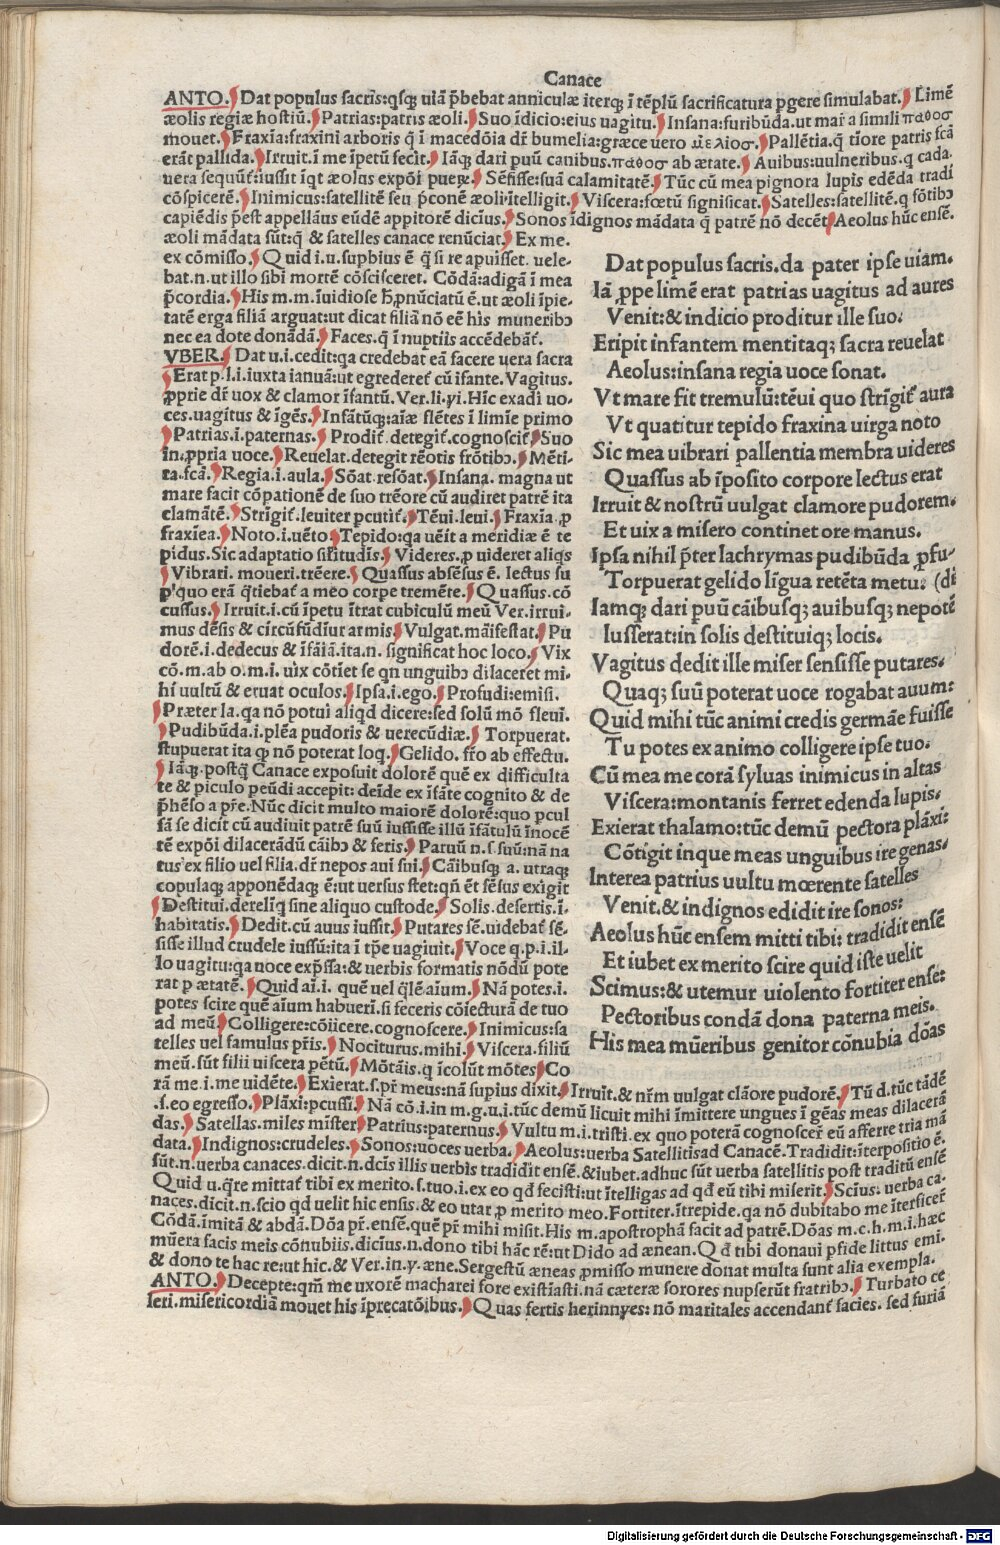 Canace
ANTO. Dat populus sacris:qsq; uiā p̄bebat anniculæ iterq; ī tēplū sacrificatura pgere simulabat. Limē
æolis regiæ hostiū. Patrias:patris æoli. Suo īdicio:eius uagitu. Insana:furibūda.ut mar̄ a simili παθοσ
mouet. Fraxīa:fraxini arboris q̄ ī macedōia dr̄ bumelia:græce uero μελιοσ. Pallētia.q̄ tīore patris fcā
erāt pallida. Irruit.ī me īpetū fecit. Iāq; dari puū canibus.παθοσ ab ætate. Auibus:uulneribus.q cada.
uera sequūt̄:iussit īqt æolus expōi puerꝝ. Sēsisse:suā calamitatē. Tūc cū mea pignora lupis edēda tradi
cōspicerē. Inimicus:satellitē seu p̄conē æoli.itelligit. Viscera:fœtū significat. Satelles:satellitē.q sōtibꝰ
capiēdis p̄est appellāus eūdē appitorē dicīus. Sonos īdignos mādata q̄ patrē nō decēt. Aeolus hūc ensē.
æoli mādata sūt:q̄ & satelles canace renūciat. Ex me.
ex cōmisso. Quid i.u.supbius ē q̄ si re apuisset. uele-
bat.n.ut illo sibi mortē cōscisceret. Cōdā:adigā ī mea
p̄cordia. His m.m.īuidiose ħ,pnūciatū ē.ut æoli īpie-
tatē erga filiā arguat:ut dicat filiā nō eē his muneribꝰ
nec ea dote donādā. Faces.q̄ ī nuptiis accēdebāt̄.
VBER. Dat u.i.cedit:qa credebat eā facere uera sacra
Erat p.l.i.iuxta ianuā:ut egrederet̄ cū īfante. Vagitus.
pprie dr̄ uox & clamor īfantū. Ver.li.yi.Hīc exadi uo-
ces.uagitus & īgēs. Infātūq;:aīæ flētes ī limīe primo
Patrias.i.paternas. Prodit̄.detegit̄.cognoscit̄. Suo
in.ppria uoce. Reuelat.detegit rēotis frōtibꝰ. Mēti-
ta.fcā. Regia.i.aula. Sōat.resōat. Insana. magna ut
mare facit cōpationē de suo trēore cū audiret patrē ita
clamātē. Strīgit̄.leuiter pcutit̄. Tēui.leui. Fraxīa ꝓ
fraxīea. Noto.i.uēto. Tepido:qa uēit a meridiæ ē te
pidus.Sic adaptatio silitudīs. Videres.ꝓ uideret aliqs
Vibrari. moueri.trēere. Quassus absēsus ē. lectus su
p quo erā q̄tiebat̄ a meo corpe tremēte. Quassus.cō
cussus. Irruit.i.cū īpetu ītrat cubiculū meū Ver.irrui-
mus dēsis & circūfūdīur armis. Vulgat.māifestat. Pu
dorē.i.dedecus & īfāīā.ita.n. significat hoc loco. Vix
cō.m.ab o.m.i. uix cōtīet se qn unguibꝰ dilaceret mi-
hi uultū & eruat oculos. Ipsa.i.ego. Profudi:emisi.
Præter la.qa nō potui aliqd dicere:sed solū mō fleui.
Pudibūda.i.plēa pudoris & uerecūdiæ. Torpuerat.
stupuerat ita q; nō poterat loq. Gelido. frō ab effectu.
Iāq;.postq̄ Canace exposuit dolorē quē ex difficulta
te & piculo peūdi accepit: deīde ex īfāte cognito & de
p̄hēso a pr̄e.Nūc dicit multo maiorē dolorē:quo pcul
sā se dicit cū audiuit patrē suū iussisse illū īfātulū īnocē
tē expōi dilacerādū cāibꝰ & feris. Paruū n.s.suū:nā na
tus ex filio uel filia.dr̄ nepos aui sui. Cāibusq; a. utraq;
copulaq; apponēdaq; ē:ut uersus stet:qn̄ ēt sēsus exigit
Destitui.dereliq̄ sine aliquo custode. Solis.desertis.i.
habitatis. Dedit.cū auus iussit. Putares sē.uidebat̄ sē.
sisse illud crudele iussū:ita ī tp̄e uagiuit. Voce q.p.i.il-
lo uagitu:qa uoce exp̄ssa:& uerbis formatis nōdū pote
rat p ætatē. Quid aī.i. quē uel q̄lē aīum. Nā potes.i.
potes scire quē aīum habueri.si feceris cōiecturā de tuo
ad meū. Colligere:cōiicere.cognoscere. Inimicus:sa
telles uel famulus pr̄is. Nociturus.mihi. Viscera.filiū
meū.sūt filii uiscera pētū. Mōtāis.q īcolūt mōtes. Co
rā me.i.me uidēte. Exierat.s.pr̄ meus:nā supius dixit. Irruit.& nr̄m uulgat clāore pudorē. Tū d.tūc tādē
.s.eo egresso. Plāxi:pcussi. Nā cō.i.in m.g.u.i.tūc demū licuit mihi īmittere ungues ī gēas meas dilacerā
das. Satellas.miles mīster. Patrius:paternus. Vultu m.i.tristi.ex quo poterā cognoscer̄ eū afferre tria mā
data. Indignos:crudeles. Sonos:uoces uerba. Aeolus:uerba Satellitisad Canacē.Tradidit:īterpositio ē.
sūt.n.uerba canaces.dicit.n.dcīs illis uerbis tradidit ensē.&iubet.adhuc sūt uerba satellitis post traditū ensē
Quid u.q̄re mittat̄ tibi ex merito.s.tuo.i.ex eo qđ fecisti:ut ītelligas ad qđ eū tibi miserit. Scīus: uerba ca-
naces.dicit.n.scio qđ uelit hic ensis.& eo utar ꝓ merito meo.Fortiter.ītrepide.qa nō dubitabo me īterficer̄
Cōdā.īmitā & abdā.Dōa pr̄.ensē.quē pr̄ mihi misit.His m.apostrophā facit ad patrē.Dōas m.c.h.m.i.hæc
mūera facis meis cōnubiis.dicīus.n.dono tibi hāc rē:ut Dido ad ænean.Qđ tibi donaui pfide littus emi.
& dono te hac re:ut hic.& Ver.in.y.æne.Sergestū æneas ꝓmisso munere donat multa sunt alia exempla.
ANTO. Decepte:qm̄ me uxorē macharei fore existīasti.nā cæteræ sorores nupserūt fratribꝰ. Turbato ce
leri.misericordiā mouet his īprecatōibus. Quas fertis herinnyes: nō maritales accendant̄ facies. sed furiā
Dat populus sacris.da pater ipse uiam.
Iā ꝓpe limē erat patrias uagitus ad aures
Venit:& indicio proditur ille suo.
Eripit infantem mentitaq; sacra reuelat
Aeolus:insana regia uoce sonat.
Vt mare fit tremulū:tēui quo strīgit̄ aura
Vt quatitur tepido fraxina uirga noto
Sic mea uibrari pallentia membra uideres
Quassus ab īposito corpore lectus erat
Irruit & nostrū uulgat clamore pudorem.
Et uix a misero continet ore manus.
Ipsa nihil p̄ter lachrymas pudibūda ꝓfu-
Torpuerat gelido līgua retēta metu. (di
Iamq; dari puū cāibusq; auibusq; nepotē
Iusserat:in solis destituiq; locis.
Vagitus dedit ille miser sensisse putares.
Quaq; suū poterat uoce rogabat auum:
Quid mihi tūc animi credis germāe fuisse
Tu potes ex animo colligere ipse tuo.
Cū mea me corā syluas inimicus in altas
Viscera:montanis ferret edenda lupis.
Exierat thalamo:tūc demū pectora plāxi:
Cōtigit inque meas unguibus ire genas.
Interea patrius uultu mœrente satelles
Venit.& indignos edidit ire sonos:
Aeolus hūc ensem mitti tibi: tradidit ensē
Et iubet ex merito scire quid iste uelit
Scimus:& utemur uiolento fortiter ense:
Pectoribus condā dona paterna meis.
His mea mūeribus genitor cōnubia dōas
Digitalisierung gefördert durch die Deutsche Forschungsgemeinschaft - DFG